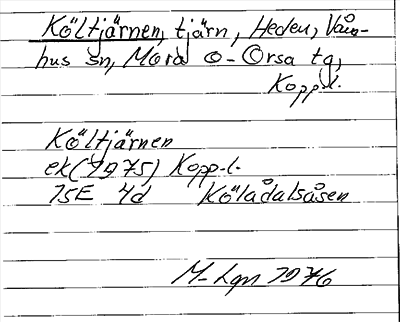 Költjärnen, tjärn, Heden, Våm-
hus sn, Mora o- Orsa tg,
Kopp.l.
Költjärnen
ek (1975) Kopp.l.
15E 4d Kölådalsåsen
M-Lgn 1976